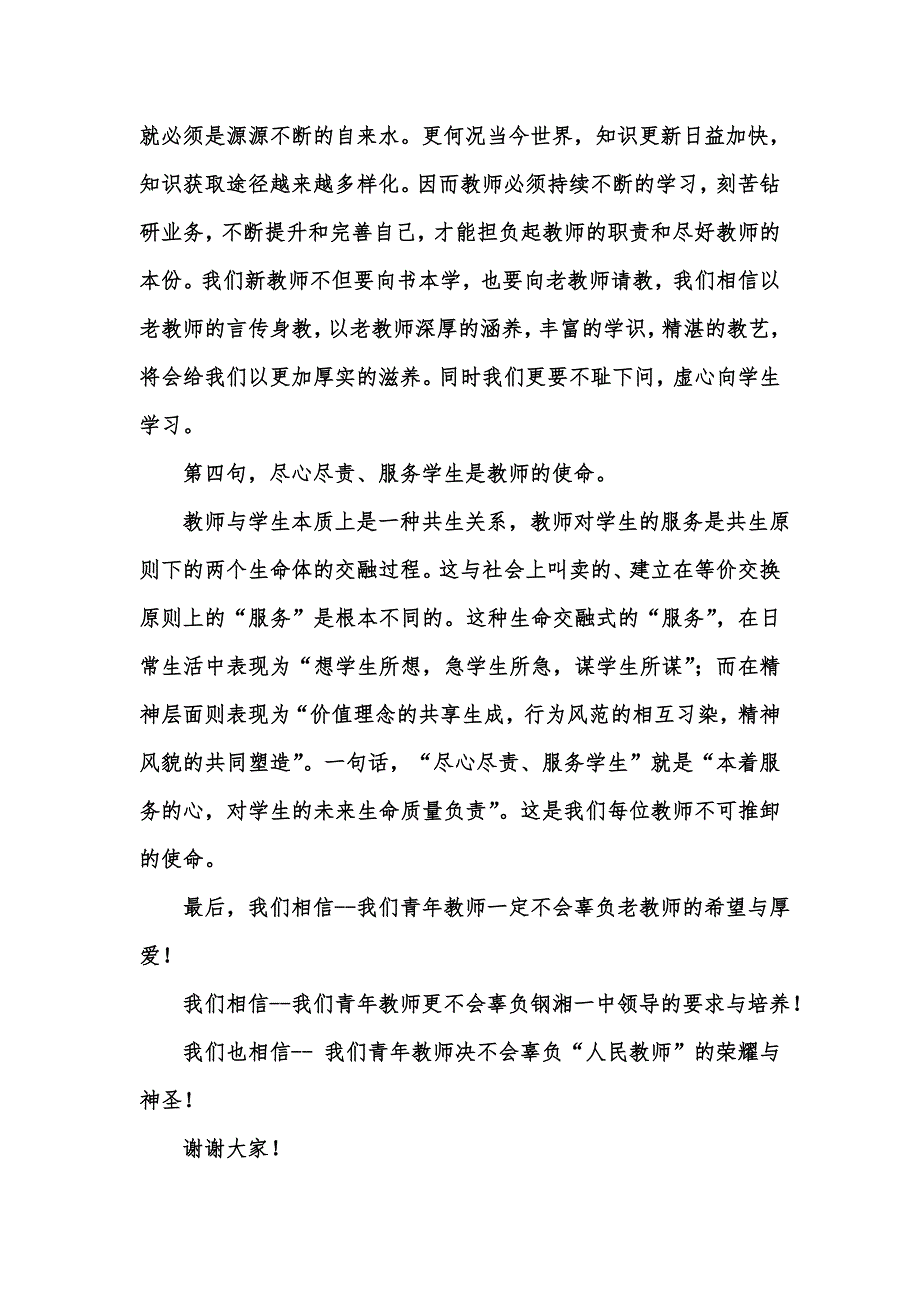 就必须是源源不断的自来水。更何况当今世界，知识更新日益加快，
知识获取途径越来越多样化。因而教师必须持续不断的学习，刻苦钻
研业务，不断提升和完善自己，才能担负起教师的职责和尽好教师的
本份。我们新教师不但要向书本学，也要向老教师请教，我们相信以
老教师的言传身教，以老教师深厚的涵养，丰富的学识，精湛的教艺，
将会给我们以更加厚实的滋养。同时我们更要不耻下问，虚心向学生
学习。
第四句，尽心尽责、服务学生是教师的使命。
教师与学生本质上是一种共生关系，教师对学生的服务是共生原
则下的两个生命体的交融过程。这与社会上叫卖的、建立在等价交换
原则上的“服务”是根本不同的。这种生命交融式的“服务”，在日
常生活中表现为“想学生所想，急学生所急，谋学生所谋”；而在精
神层面则表现为“价值理念的共享生成，行为风范的相互习染，精神
风貌的共同塑造”。一句话，“尽心尽责、服务学生”就是“本着服
务的心，对学生的未来生命质量负责”。这是我们每位教师不可推卸
的使命。
最后，我们相信--我们青年教师一定不会辜负老教师的希望与厚
爱！
我们相信--我们青年教师更不会辜负钢湘一中领导的要求与培养！
我们也相信-- 我们青年教师决不会辜负“人民教师”的荣耀与
神圣！
谢谢大家！